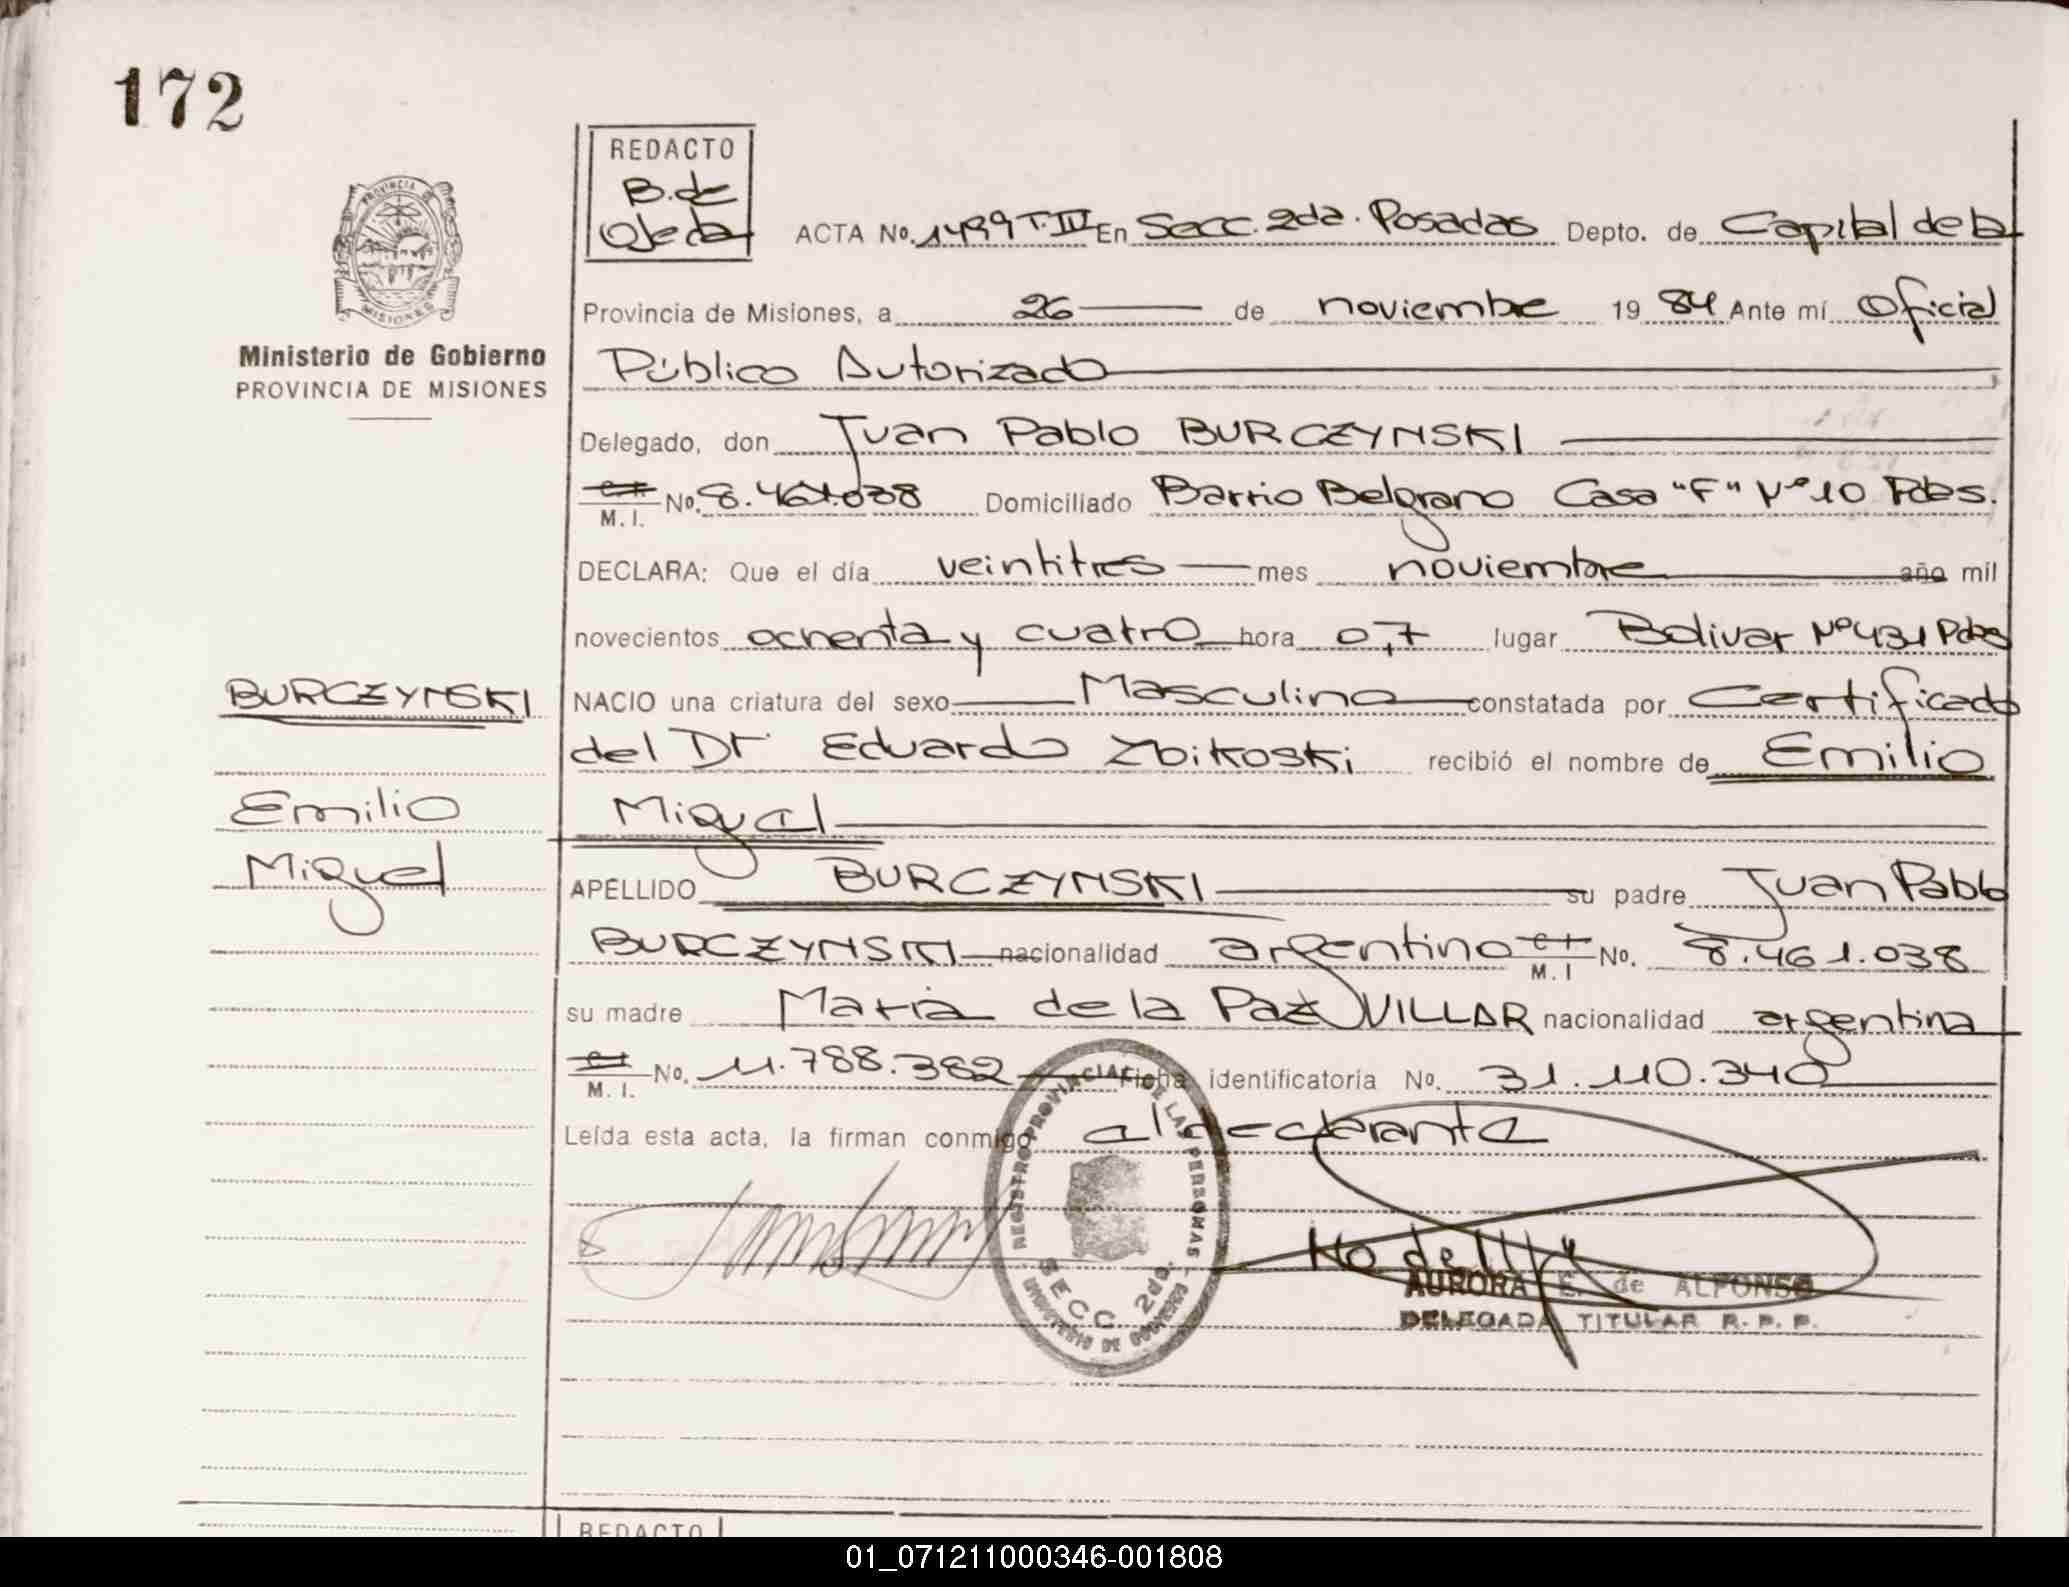 172
REDACTO
B. de
Ojeda
ACTA No. 1499 T. IV En Secc. 2da. Posadas Depto. de Capital de la
PROVINCIA DE
MISIONES
Provincia de Misiones, a 26 de noviembre 19 84 Ante mí Oficial
Ministerio de Gobierno
PROVINCIA DE MISIONES
Público Autorizado
Delegado, don Juan Pablo BURCZYNSKI
M. I. No. 8.461.038 Domiciliado Barrio Belgrano Casa "F" Nº 10 Pdas.
DECLARA: Que el día veintitres mes noviembre año mil
novecientos ochenta y cuatro hora 0,7 lugar Bolivar Nº 431 Pdas
BURCZYNSKI
NACIO una criatura del sexo Masculino constatada por Certificado
del Dr Eduardo Zbikoski recibió el nombre de Emilio
Emilio
Miguel
Miguel
APELLIDO BURCZYNSKI su padre Juan Pablo
BURCZYNSKI nacionalidad argentino M. I No. 8.461.038
su madre Maria de la Paz VILLAR nacionalidad argentina
M. I. No. 11.788.382 Ficha identificatoria No. 31.110.340
Leída esta acta, la firman conmigo el declarante
REGISTRO PROVINCIAL DE LAS PERSONAS
SECC 2da.
MINISTERIO DE GOBIERNO
AURORA E. de ALFONSO
DELEGADA TITULAR R. P. P.
REDACTO
01_071211000346-001808